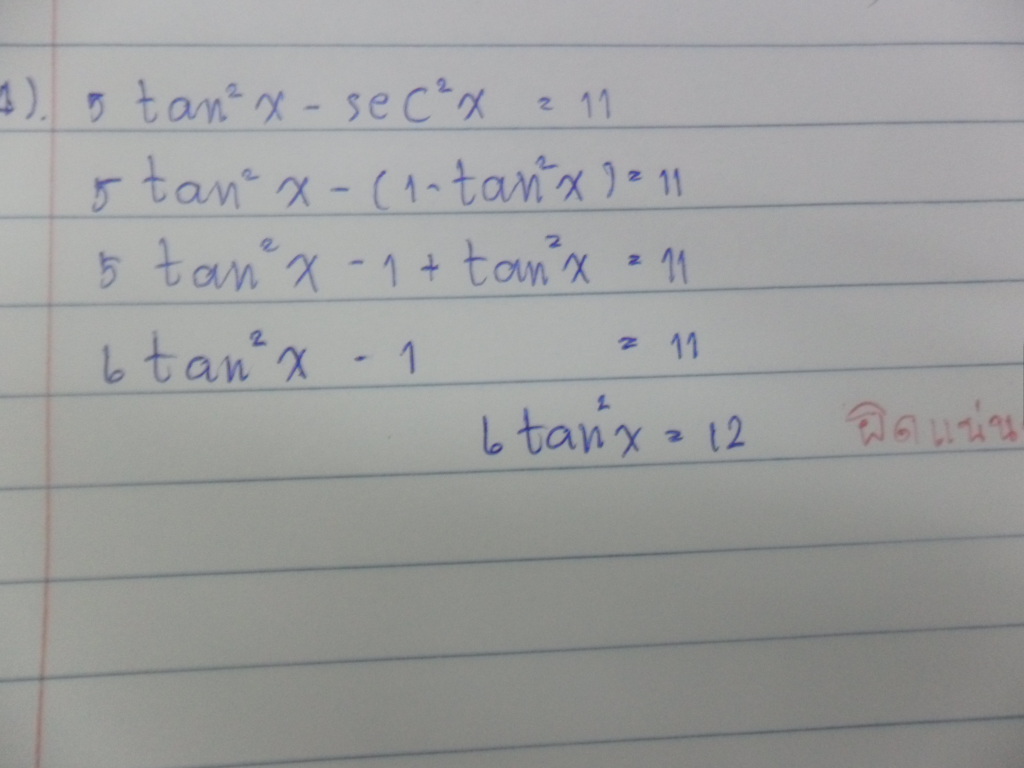 1). 5 tan²x - sec²x = 11
5 tan²x - (1 - tan²x) = 11
5 tan²x - 1 + tan²x = 11
6 tan²x - 1 = 11
6 tan²x = 12 ผิดแน่น